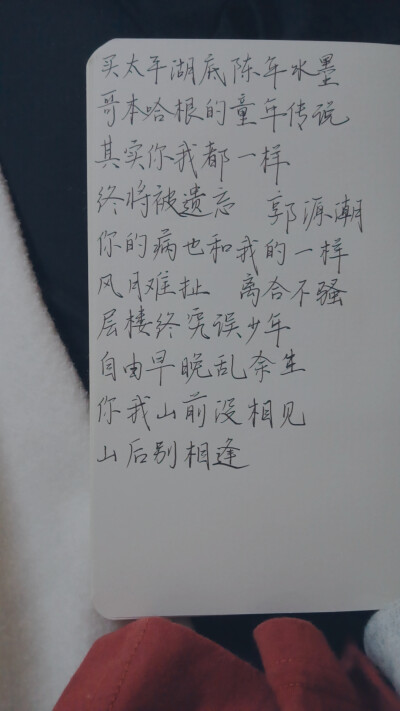 买太平湖底陈年水墨
哥本哈根的童年传说
其实你我都一样
终将被遗忘 郭源潮
你的病也和我的一样
风月难扯 离合不骚
层楼终究误少年
自由早晚乱余生
你我山前没相见
山后别相逢